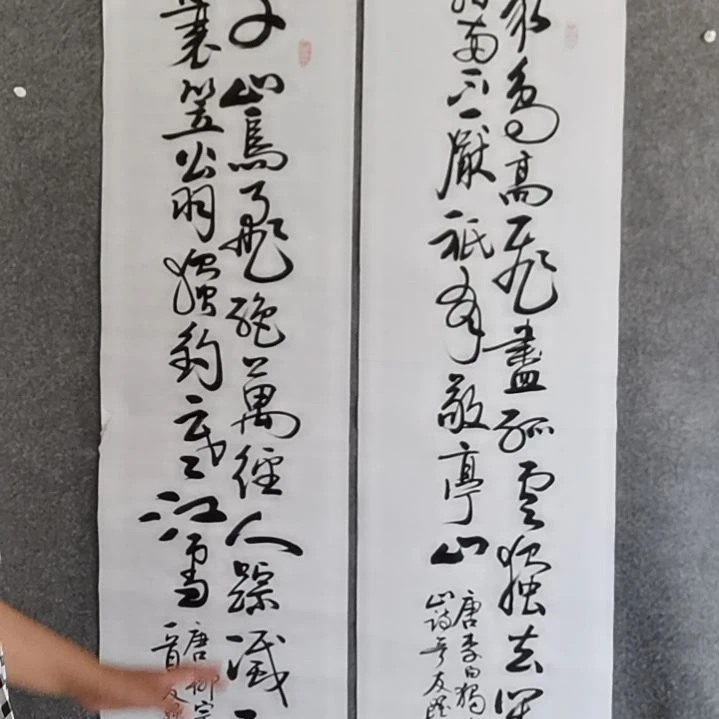 眾鳥高飛盡孤雲獨去閒
兩不厭祇有敬亭山
唐李白獨
山詩一首友
千山鳥飛絕萬徑人踪滅
蓑笠翁獨釣寒江雪
唐柳宗
一首友